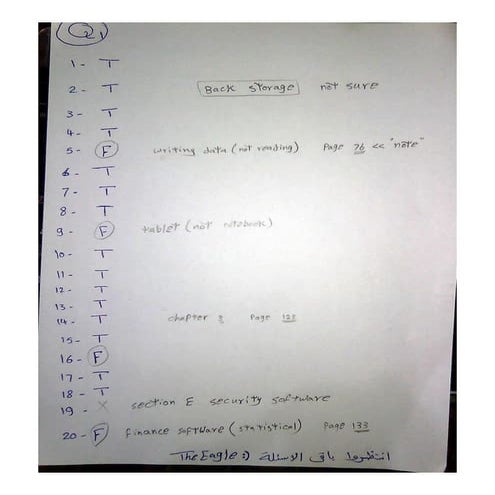 Q1
1 - T
2 - T Back storage not sure
3 - T
4 - T
5 - F writing data (not reading) Page 76 << "note"
6 - T
7 - T
8 - T
9 - F tablet (not notebook)
10 - T
11 - T
12 - T
13 - T
14 - T chapter 3 Page 123
15 - T
16 - F
17 - T
18 - T
19 - X section E security software
20 - F finance software (statistical) Page 133
The Eagle :) انتظروا باقى الاسئلة